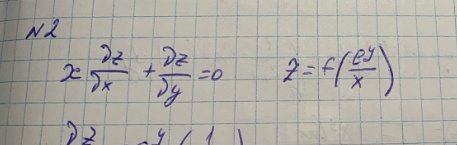 N2
x ∂z/∂x + ∂z/∂y = 0 z = f(e^y/x)
∂z